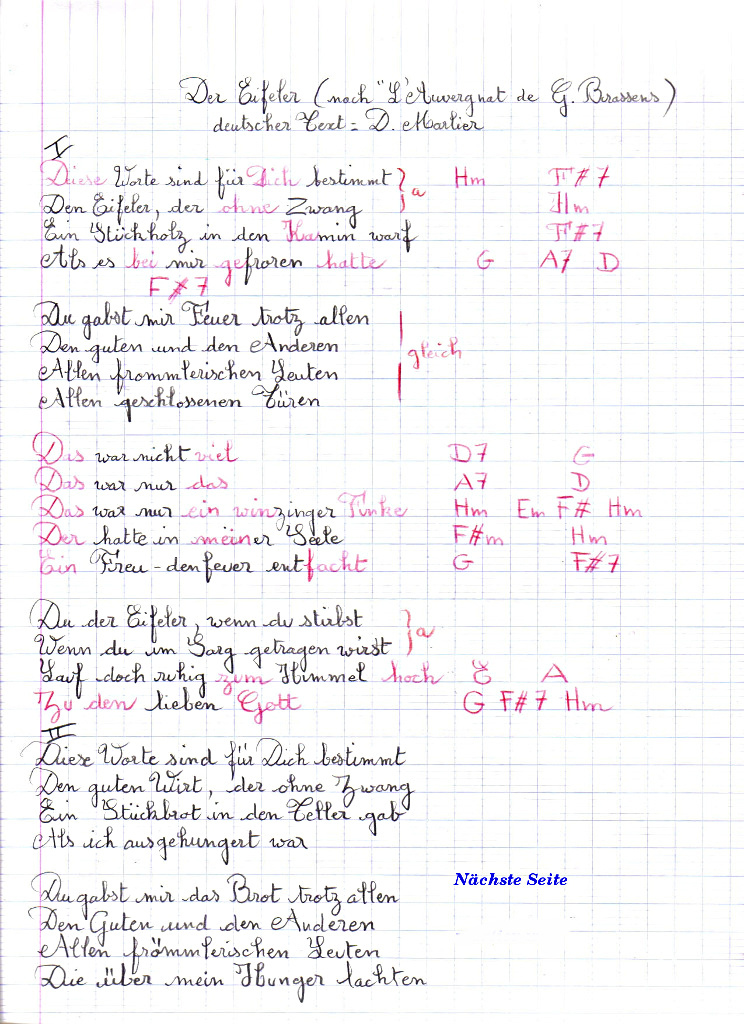 Der Eifeler (nach "L'Auvergnat de G. Brassens)
deutscher Text = D. Marlier
I
Diese Worte sind für Dich bestimmt } a Hm F#7
Den Eifeler, der ohne Zwang Hm
Ein Stückholz in den Kamin warf F#7
Als es bei mir gefroren hatte G A7 D
F#7
Du gabst mir Feuer trotz allen
Den guten und den Anderen
gleich
Allen frommlerischen Leuten
Allen geschlossenen Türen
Das war nicht viel D7 G
Das war nur das A7 D
Das war nur ein winzinger Funke Hm Em F# Hm
Der hatte in meiner Seele F#m Hm
Ein Freu-denfeuer entfacht G F#7
Du der Eifeler, wenn du stirbst
Wenn du im Sarg getragen wirst } a
Lauf doch ruhig zum Himmel hoch E A
Zu den lieben Gott G F#7 Hm
II
Diese Worte sind für Dich bestimmt
Den guten Wirt, der ohne Zwang
Ein Stückbrot in den Teller gab
Als ich ausgehungert war
Nächste Seite
Du gabst mir das Brot trotz allen
Den Guten und den Anderen
Allen frömmlerischen Leuten
Die über mein Hunger lachten